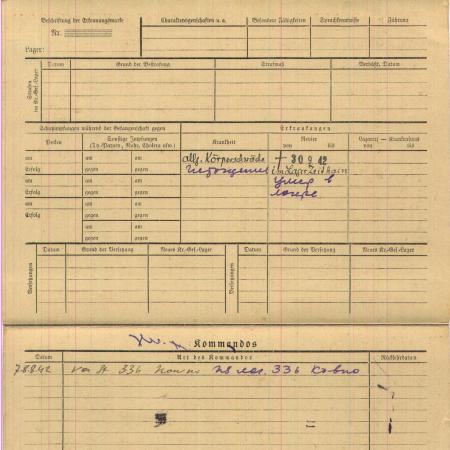 Beschriftung der Erkennungsmarke
Nr.
Lager:
Charaktereigenschaften u. a.
Besondere Fähigkeiten
Sprachkenntnisse
Führung
Strafen im Kr.-Gef.-Lager
Datum
Grund der Bestrafung
Strafmaß
Verbüßt, Datum
Schutzimpfungen während der Gefangenschaft gegen
Erkrankungen
Pocken
Sonstige Impfungen
(Ty.-Paratyp., Ruhr, Cholera usw.)
Krankheit
Revier
von bis
Lazarett — Krankenhaus
von bis
am am am
Erfolg gegen gegen
am am am
Erfolg gegen gegen
am am am
Erfolg gegen gegen
am am am
Erfolg gegen gegen
am am
gegen gegen
allg. Körperschwäche + 30 9 42
Истощение im Lager Zeithain
умер в
лагере
Versetzungen
Datum
Grund der Versetzung
Neues Kr.-Gef.-Lager
Versetzungen
Datum
Grund der Versetzung
Neues Kr.-Gef.-Lager
Kommandos
Datum
Art des Kommandos
Rückkehrdatum
7.8.42 336 из лаг. 336 Ковно